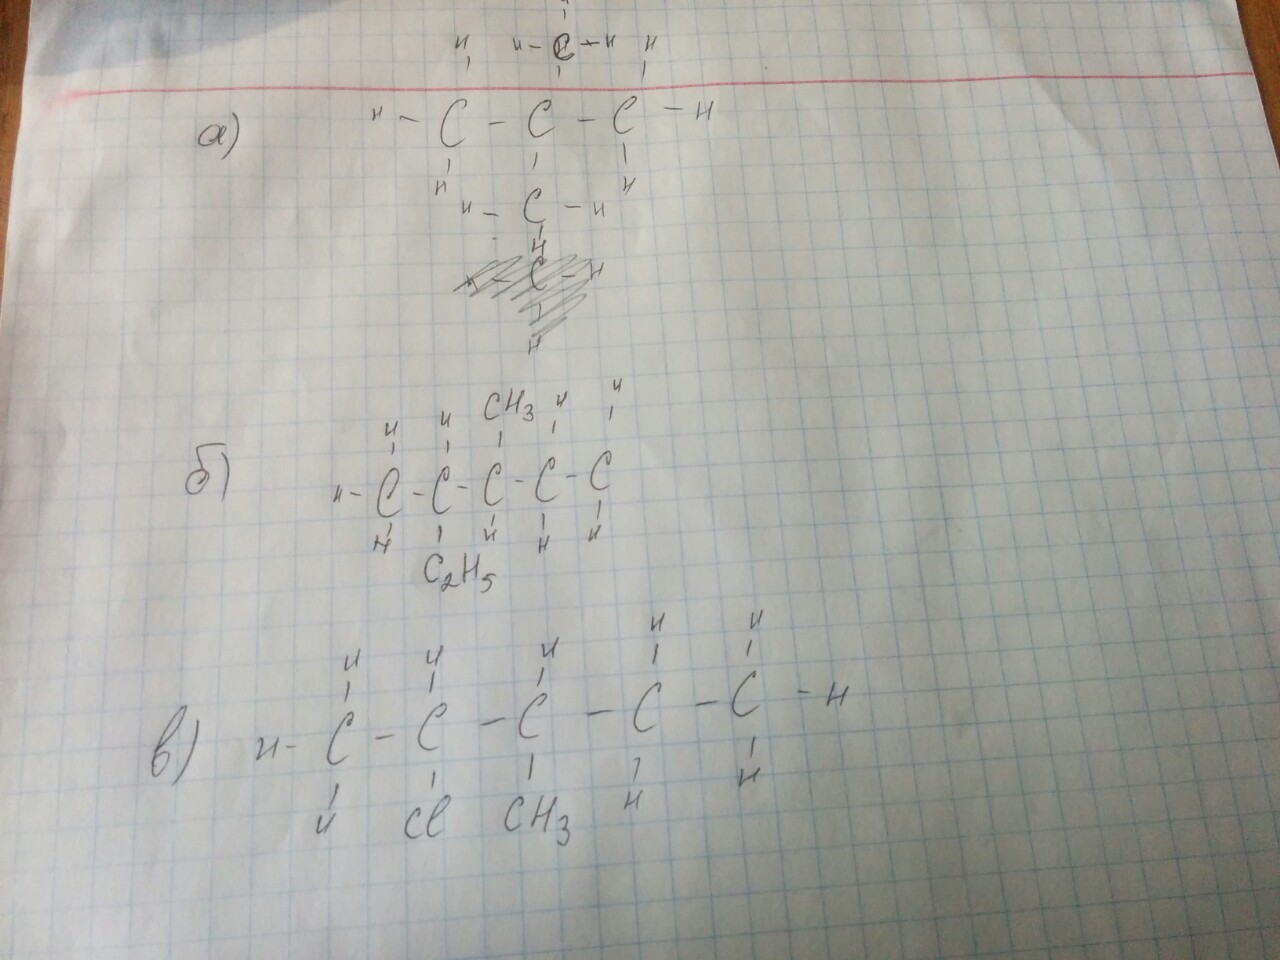 H
H H - C - H H
а) H - C - C - C - H
H H
H - C - H
H
C - H
H
H H CH₃ H H
б) H - C - C - C - C - C
H C₂H₅ H H H
H H H H H
в) H - C - C - C - C - C - H
H Cl CH₃ H H